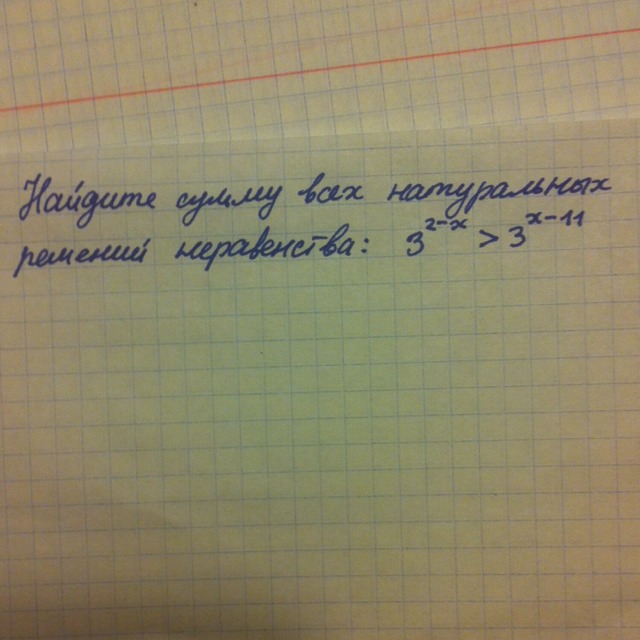 Найдите сумму всех натуральных
решений неравенства: 3^{2-x} > 3^{x-11}